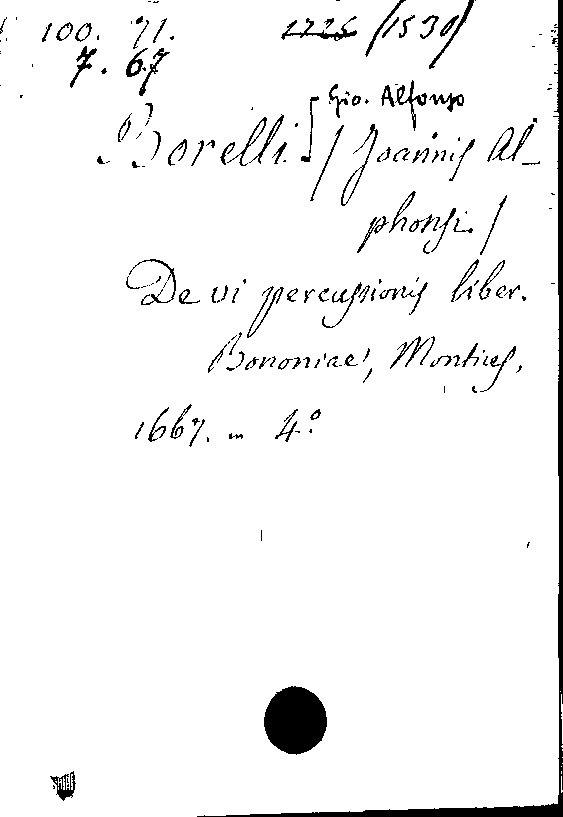 100. 71. 1726 (1530)
7. 67
Gio. Alfonso
Borelli / Joannis Al-
phonsi. /
De vi percussionis liber.
Bononiae, Montius,
1667. in 4.º